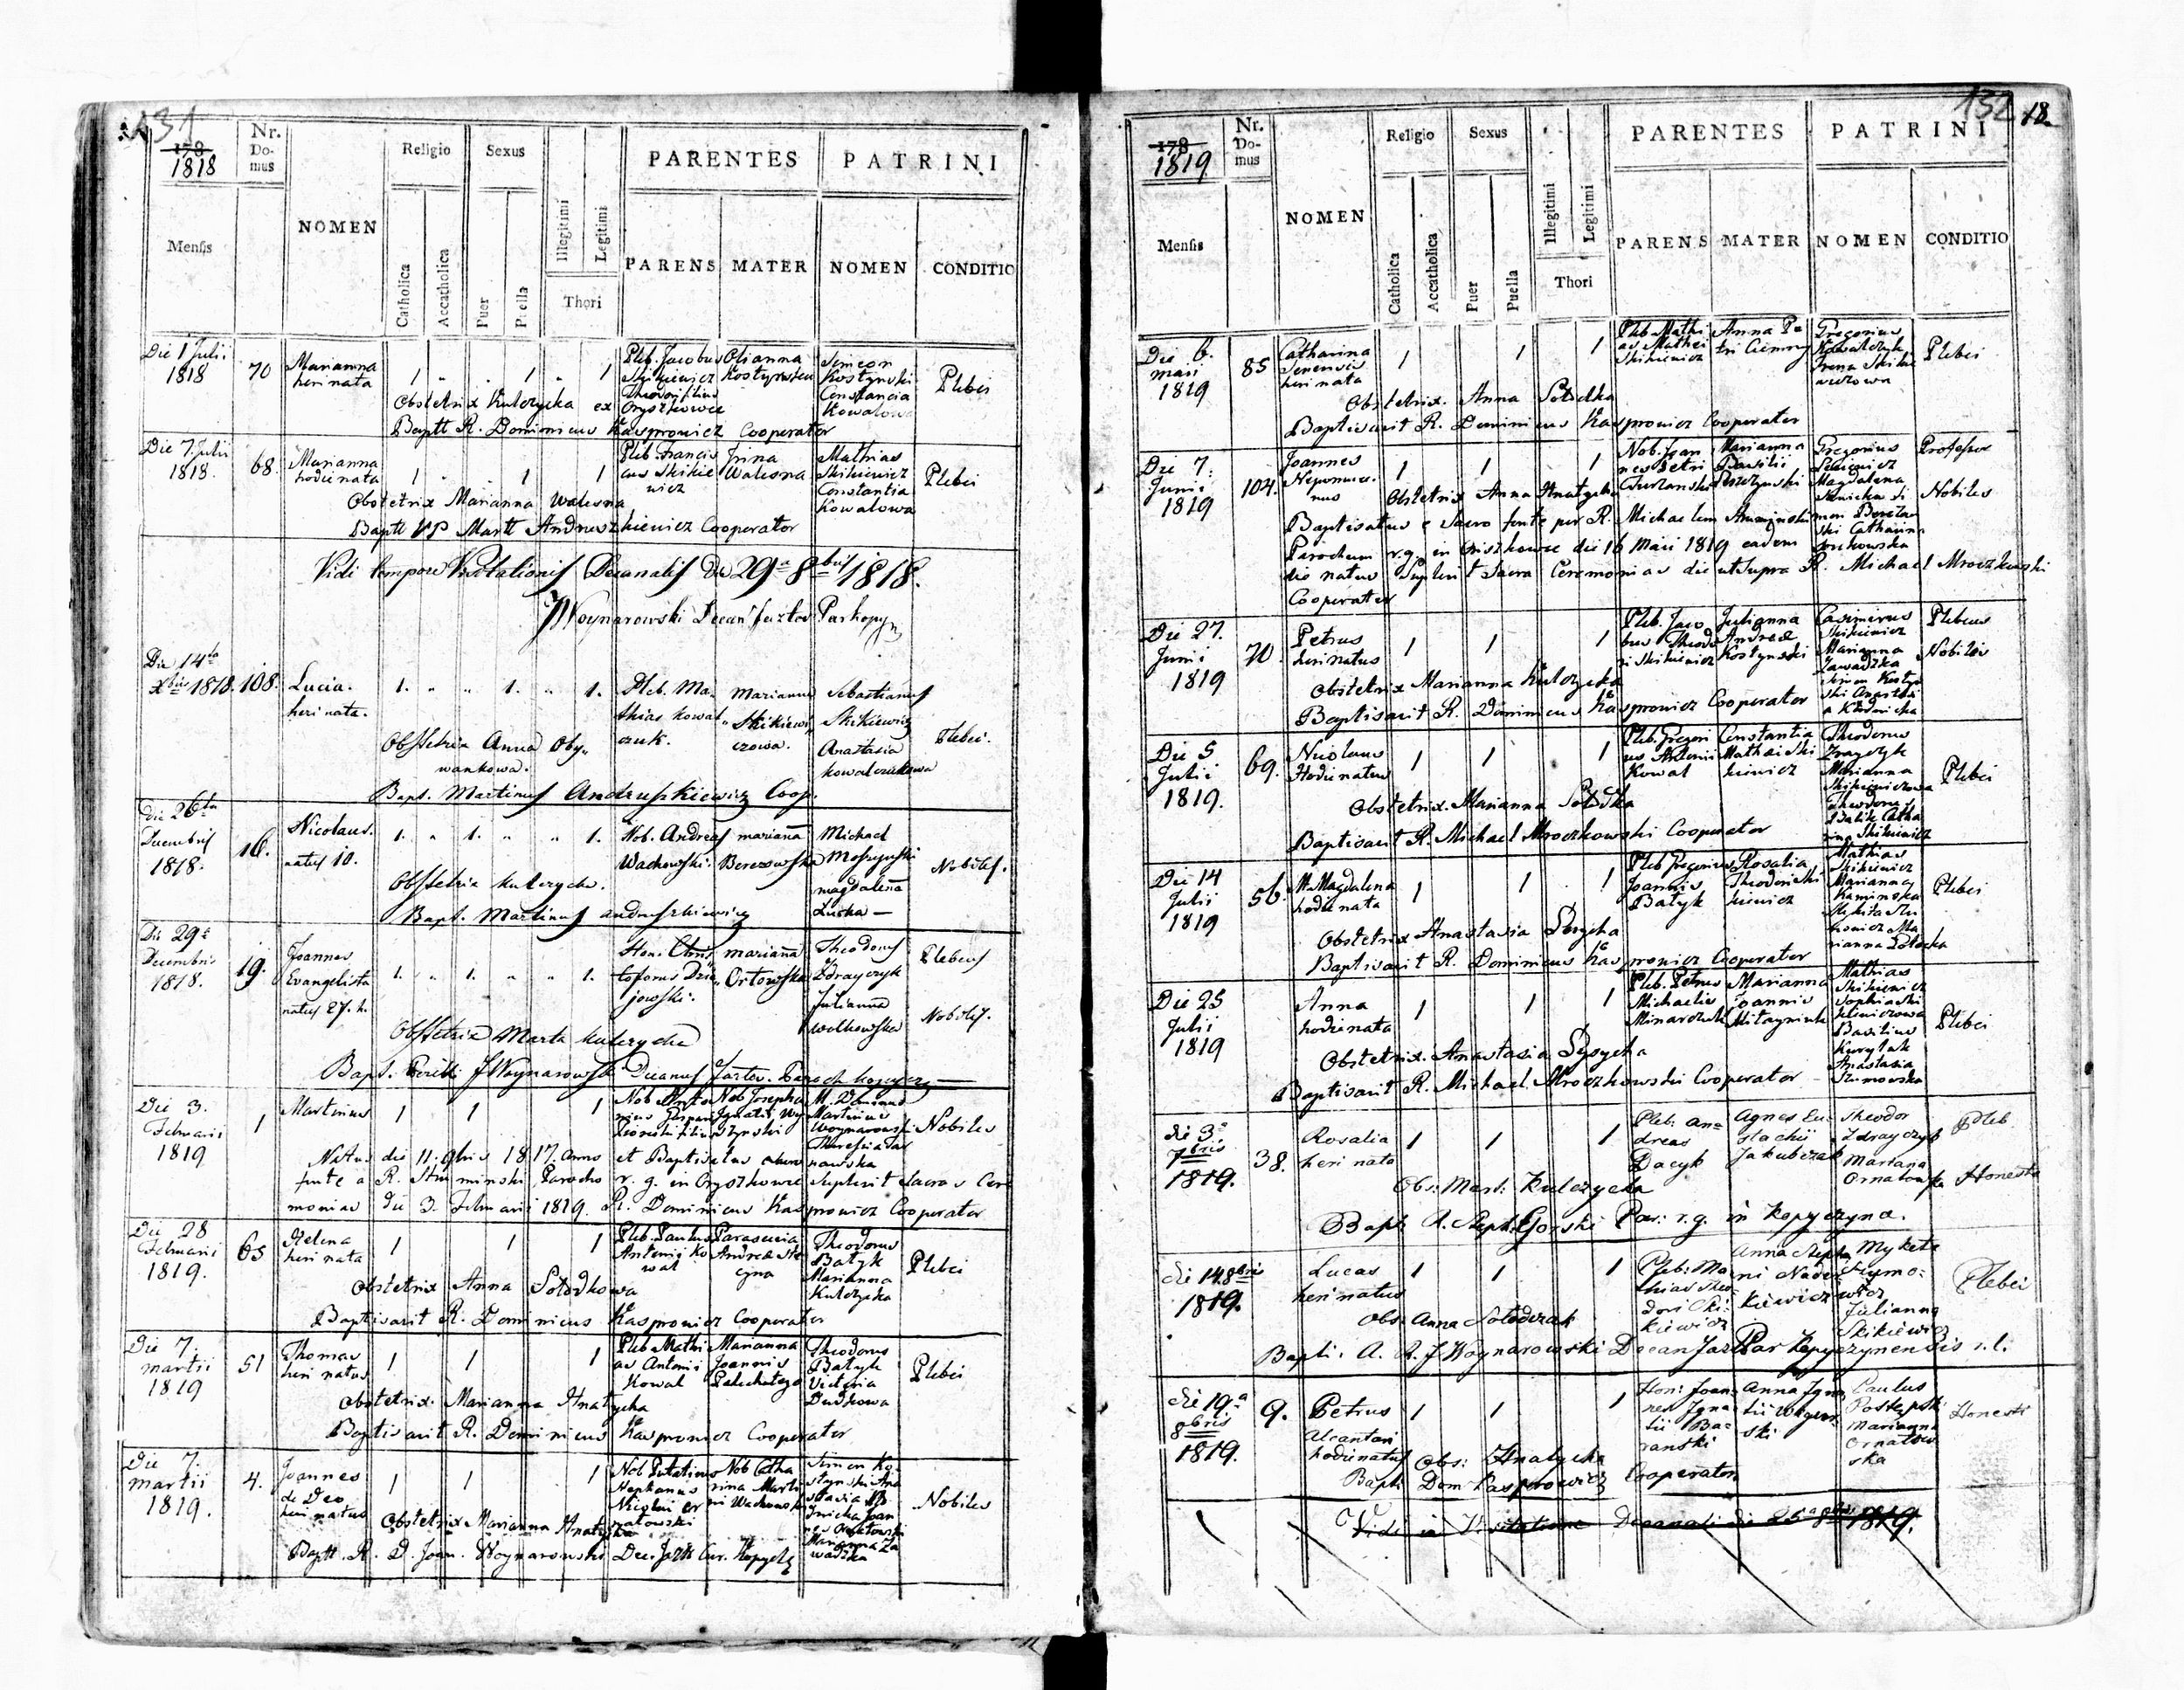 131
178
1818
Nr. Domus
NOMEN
Religio
Sexus
PARENTES
PATRINI
Mensis
Catholica
Accatholica
Puer
Puella
Illegitimi
Legitimi
Thori
PARENS
MATER
NOMEN
CONDITIO
Die 1 Julii
1818
70
Marianna
heri nata
1 1 1
Pleb. Jacobus
Skikiewicz
Theodori filius
Oryszkowce
Kostynski
Simeon
Kostynski
Constancia
Kowalowa
Plebei
Obstetrix Kulczycka ex
Baptt R. Dominicus Kasprowicz Cooperator
Die 7 Julii
1818.
68.
Marianna
hodie nata
1 1 1
Pleb. Francis
cus Skikie
wicz
Irina
Walesna
Mathias
Skikiewicz
Constantia
Kowalowa
Plebei
Obstetrix Marianna Walesna
Baptt VP Martt Andruszkiewicz Cooperator
Vidi tempore Visitationis Decanalis die 29a 8bris 1818.
JWoynarowski Decan
Die 14ta
Xbris 1818.
108.
Lucia.
heri nata.
1. 1. 1.
Pleb. Ma
thias Kowal
czuk.
Marianna
Skikiewi
czowa.
Sebastianus
Skikiewicz
Anastasia
Kowalczukowa
Plebei.
Obstetrix Anna Oby
wankowa.
Bapt. Martinus Andruszkiewicz Coop.
Die 26ta
Decembris
1818.
16.
Nicolaus.
natus 10.
1. 1. 1.
Nob. Andreas
Wachowski.
Mariana
Berezowska
Michael
magdalena
Nobiles.
Obstetrix Kulczycka.
Bapt. Martinus andruszkiewicz
Die 29a
Decembris
1818.
19.
Joannes
Evangelista
natus 27. h.
1. 1. 1.
Hon. Chris
toforus Dzie
jowski.
mariana
Ortowska
Theodorus
Zdrayczyk
Julianna
Wolkowska
Plebeus
Nobilis.
Obstetrix Marta Kulczycka
Bapt. JWoynarowski Decanus
Die 3.
Februarii
1819
1
Martinus
1 1 1
Nob Josepha
Ignatii Wy
Martinus
Woynarowski
Theresia Tar
nawska
Nobiles
Natus die 11. 9bris 1817. anno et Baptisatus
fonte a R. Parocho r. g. in Oryszkowce Suplevit Sacras Cere
monias die 3. Februarii 1819. R. Dominicus Kasprowicz Cooperator
Die 28
Februarii
1819.
65
Helena
heri nata
1 1 1
Pleb. Paulus
Antonii Ko
wal
Parascevia
Andreae Sto
Theodorus
Batyk
Marianna
Kulczycka
Plebei
Obstetrix Anna Solodkowa
Baptisavit R. Dominicus Kasprowicz Cooperator
Die 7.
martii
1819
51
Thomas
heri natus
1 1 1
Pleb Mathi
as Antonii
Kowal
Marianna
Joannis
Theodorus
Batyk
Victoria
Dudkowa
Plebei
Obstetrix. Marianna Hnatycka
Baptisavit R. Dominicus Kasprowicz Cooperator
Die 7.
martii
1819.
4.
Joannes
de Deo
heri natus
1 1 1
Stephanus
Nicolai Or
natowski
Nob Catha
rina Marti
ni Wachowski
Simon Ko
stynski
Marianna Za
wadzka
Nobiles
Obstetrix Marianna Hnatycka
Baptt. R. D. Joan. Woynarowski
132
18.
178
1819
Nr. Domus
NOMEN
Religio
Sexus
PARENTES
PATRINI
Mensis
Catholica
Accatholica
Puer
Puella
Illegitimi
Legitimi
Thori
PARENS
MATER
NOMEN
CONDITIO
Die 6.
maii
1819
85
Catharina
Senensis
heri nata
1 1 1
Pleb Mathi
as Mathei
Skikiewicz
Anna Pe
tri Ciemny
Gregorius
Kowalczyk
Irena Skikie
wiczowa
Plebei
Obstetrix. Anna Solodka
Baptisavit R. Dominicus Kasprowicz Cooperator
Die 7.
Junii
1819
104.
Joannes
Nepomuce
nus
1 1 1
Nob. Joan
nes Petri
Turzanski
Marianna
Basilii
Gregorius
Magdalena
Catharina
Professor
Nobiles
Obstetrix Anna Hnatycka
Baptisatus e Sacro fonte per R. Michaelem
Parochum r.g. in Oriszkowce die 16 Maii 1819 eadem
die natus Suplevit Sacras Ceremonias die ut Supra R. Michael Mroczkowski
Cooperator
Die 27.
Junii
1819
70.
Petrus
heri natus
1 1 1
Pleb. Jaco
bus Theodo
ri Skikiewicz
Julianna
Andreae
Kostynski
Casimirus
Skikiewicz
Marianna
Zawadzka
Simon Kosty
Plebeus
Nobiles
Obstetrix Marianna Kulczycka
Baptisavit R. Dominicus Kasprowicz Cooperator
Die 5.
Julii
1819.
69.
Nicolaus
Hodie natus
1 1 1
Pleb. Gregori
us Antonii
Kowal
Constantia
Mathei Ski
kiewicz
Theodorus
Marianna
Skikiewiczowa
Batik Catha
rina Skikiewicz
Plebei
Obstetrix. Marianna Solodka
Baptisavit R. Michael Mroczkowski Cooperator
Die 14
Julii
1819
56.
M. Magdalena
hodie nata
1 1 1
Pleb Gregorius
Joannis
Batyk
Rosalia
Theodori Ski
kiewicz
Mathias
Skikiewicz
Marianna
Kaminska
rianna Solodka
Plebei
Obstetrix Anastasia
Baptisavit R. Dominicus Kasprowicz Cooperator
Die 25
Julii
1819
Anna
hodie nata
1 1 1
Pleb. Petrus
Michaelis
Marianna
Joannis
Mathias
Skikiewicz
Sophia Ski
kiewiczowa
Basilius
Anastasia
Szumowska
Plebei
Obstetrix. Anastasia
Baptisavit R. Michael Mroczkowski Cooperator
die 3a
7bris
1819.
38.
Rosalia
heri nata
1 1 1
Pleb: An=
dreas
Dacyk
Agnes Eu=
stachii
Jakubczak
Theodor
Zdrayczyk
Mariana
Ornatowska
Pleb
Honesta
Obs: Mart: Kulczycka
Bapt. A. Steph. Gorski Par: r. g. in Kopyczynce.
die 14 8bris
1819.
Lucas
heri natus
1 1 1
Pleb: Ma=
thias Theo
dori Ski=
kiewicz
Anna Stepha
ni Nader
kiewicz
Myketa
Szymo=
wicz
Julianna
Skikiewicz
Plebei
Obs: Anna Solodczak
Bapti. A. R. J Woynarowski Decan Jazl Par Kopyczynensis r. l.
die 19a
8bris
1819.
9.
Petrus
Alcantari
hodie natus
1 1 1
Hon: Joan=
nes Igna=
tii Ba=
ranski
Anna Igna
tii Wegier
ski
Paulus
Postepski
Marianna
Ornatow
ska
Honesti
Obs: Hnatycka
Bapti Dom Kasprowicz Cooperator
Vidi in Visitatione Decanali die 26a 8bris 1819.